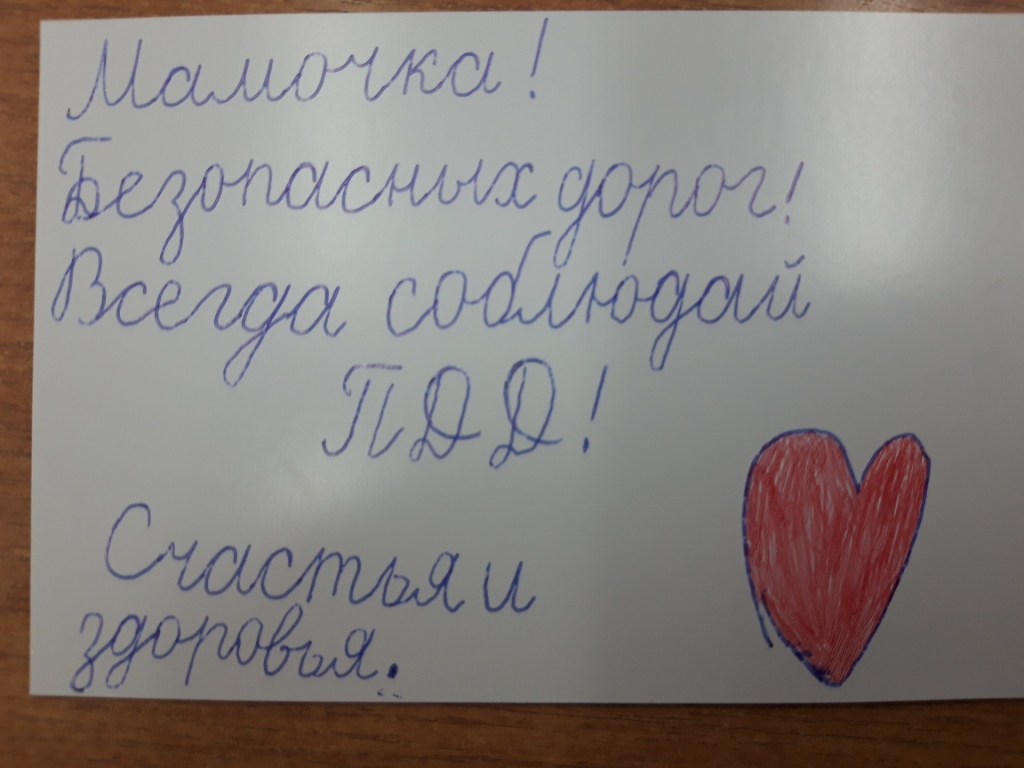 Мамочка!
Безопасных дорог!
Всегда соблюдай
ПДД!
Счастья и
здоровья.